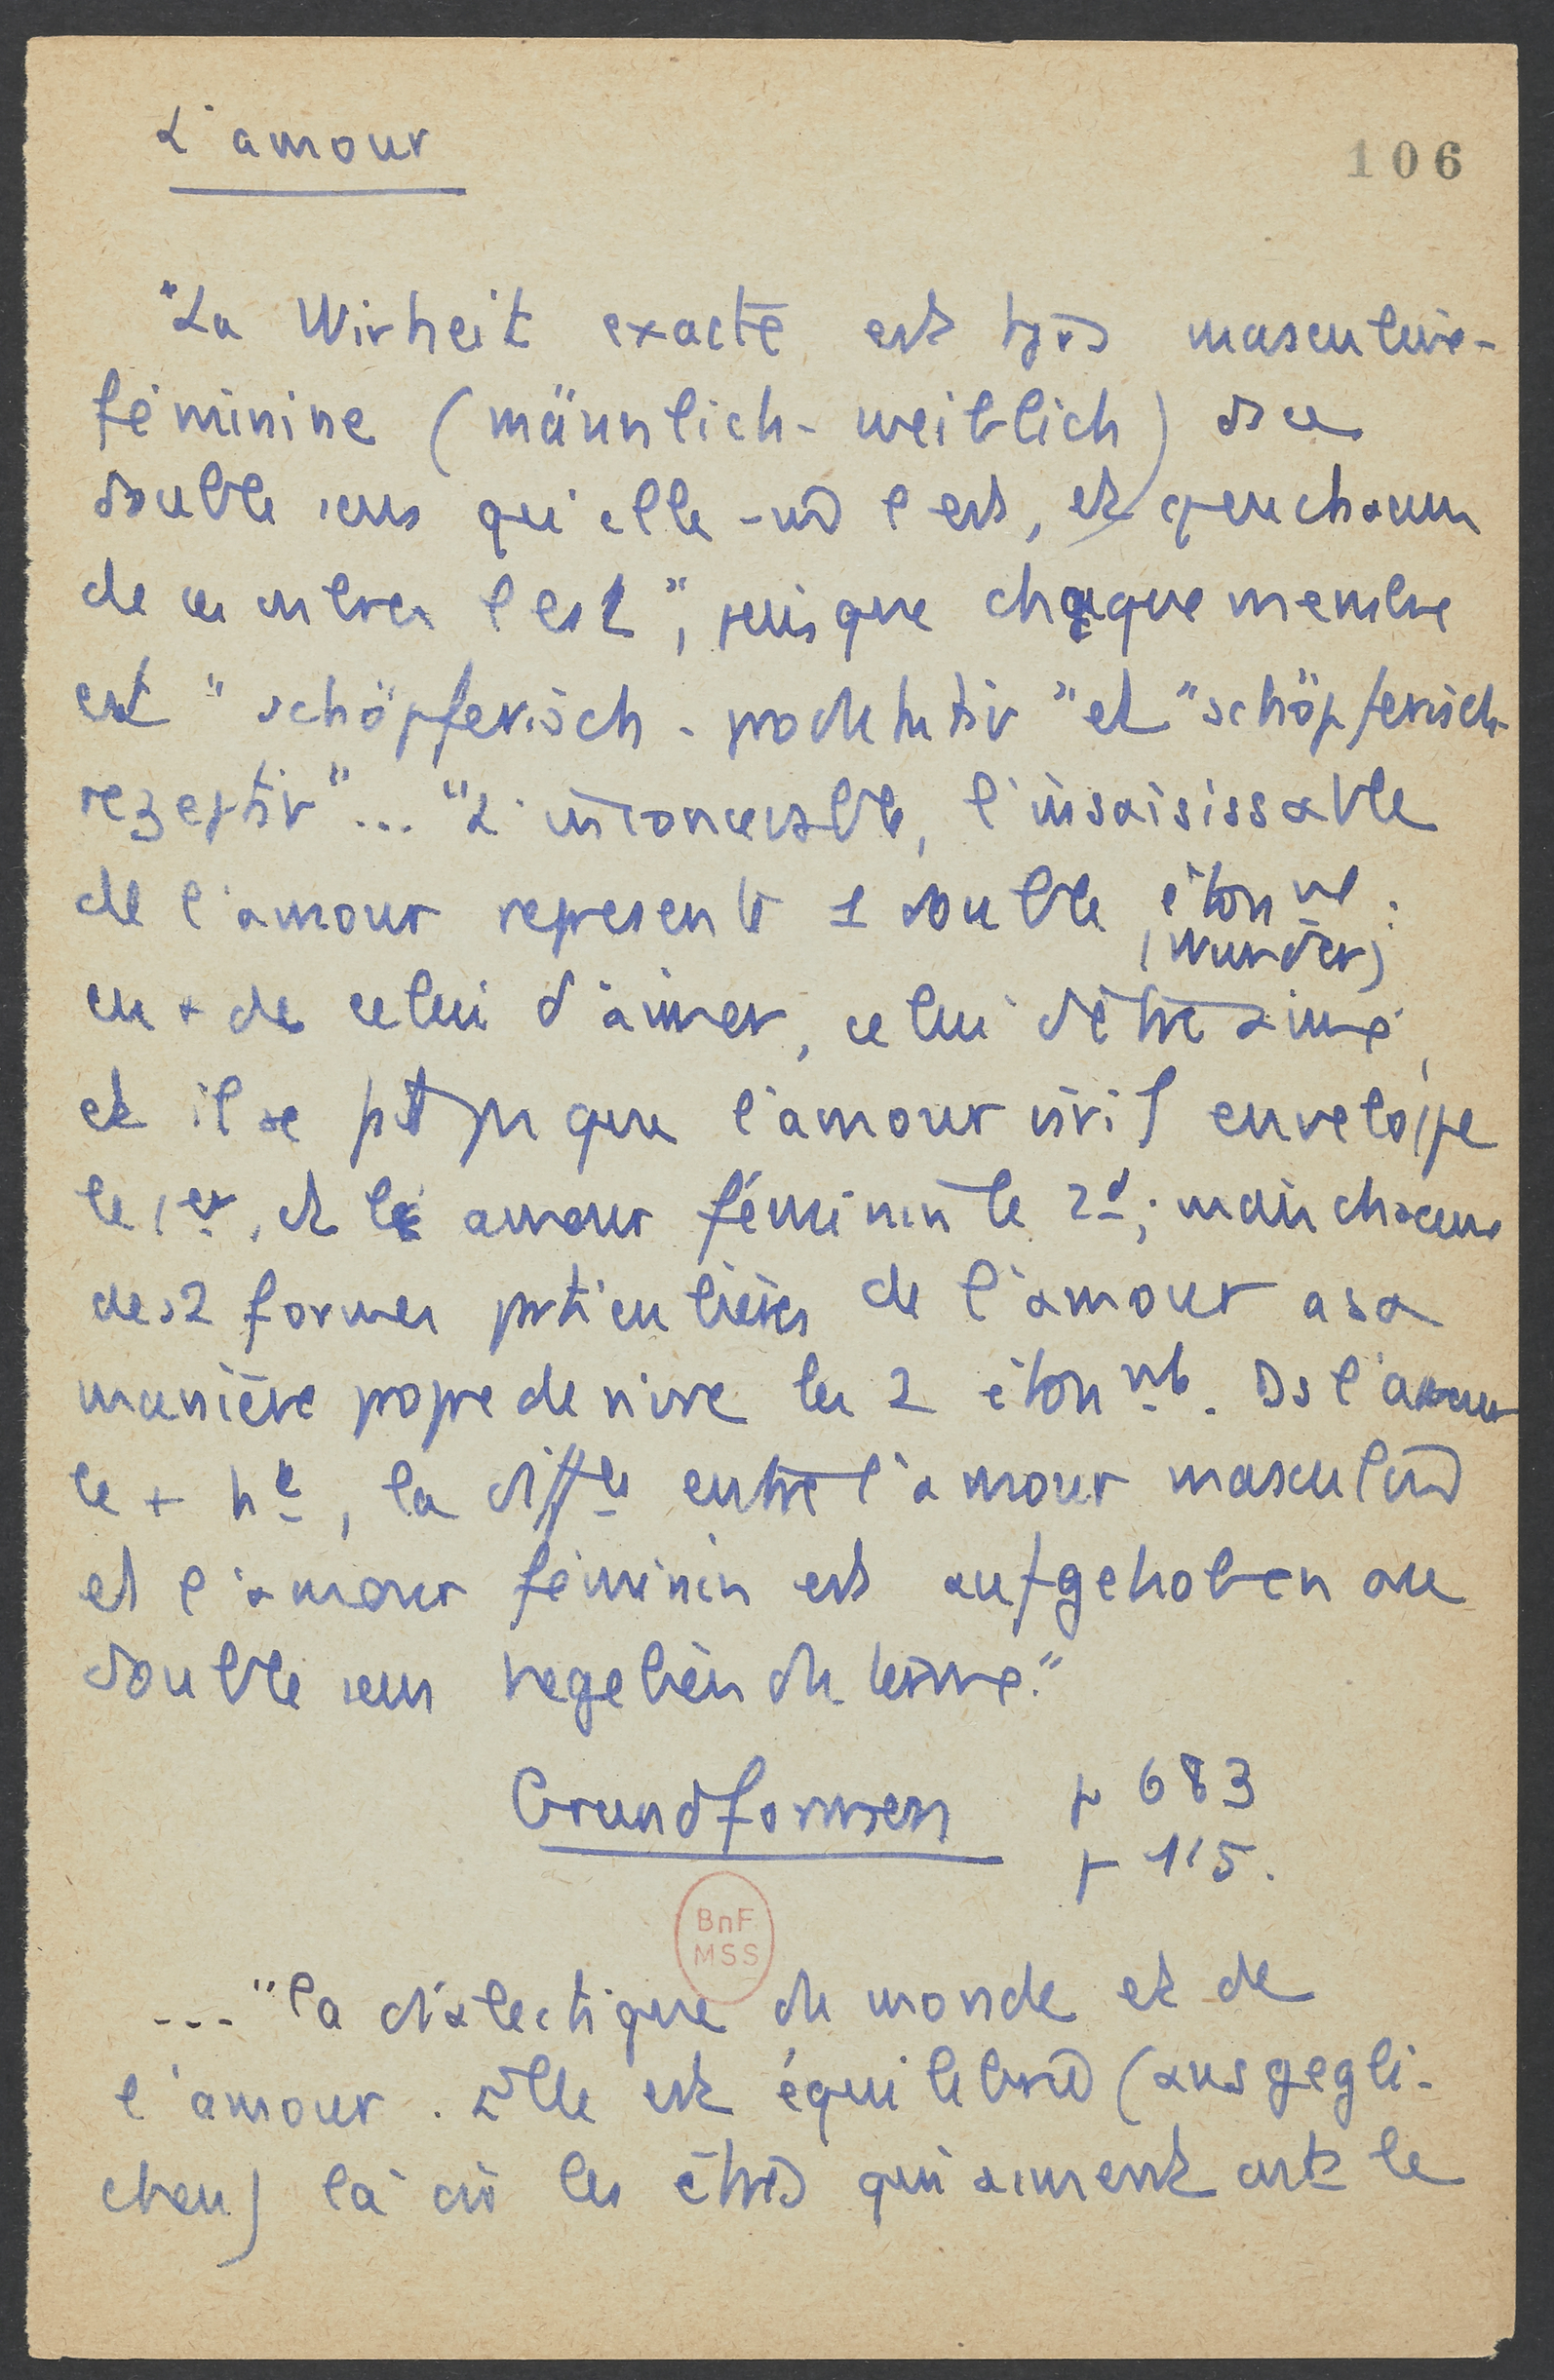 L'amour
106
"La Wirheit exacte est tjrs masculine-
féminine (männlich-weiblich) ds ce
double sens qu'elle-m̂ l'est, et que chacun
de ces membres l'est", puisque chaque membre
est "schöpferisch-produktiv" et "schöpferisch-
rezeptiv"... "L'inconcevable, l'insaisissable
de l'amour represente 1 double étonnt :
(Wunder)
en + de celui d'aimer, celui d'être aimé,
et il se pt que l'amour viril enveloppe
le 1er, et l'amour féminin le 2d; mais chacune
des 2 formes prticulières de l'amour a sa
manière propre de vivre les 2 étonnts. Ds l'amour
le + ht, la diffce entre l'amour masculin
et l'amour féminin est aufgehoben au
double sens hegelien du terme."
Grundformen p 683
p 115.
..."la dialectique du monde et de
l'amour. Elle est équilibrée (ausgegli-
chen) là où les êtres qui aiment ont le
BnF
MSS